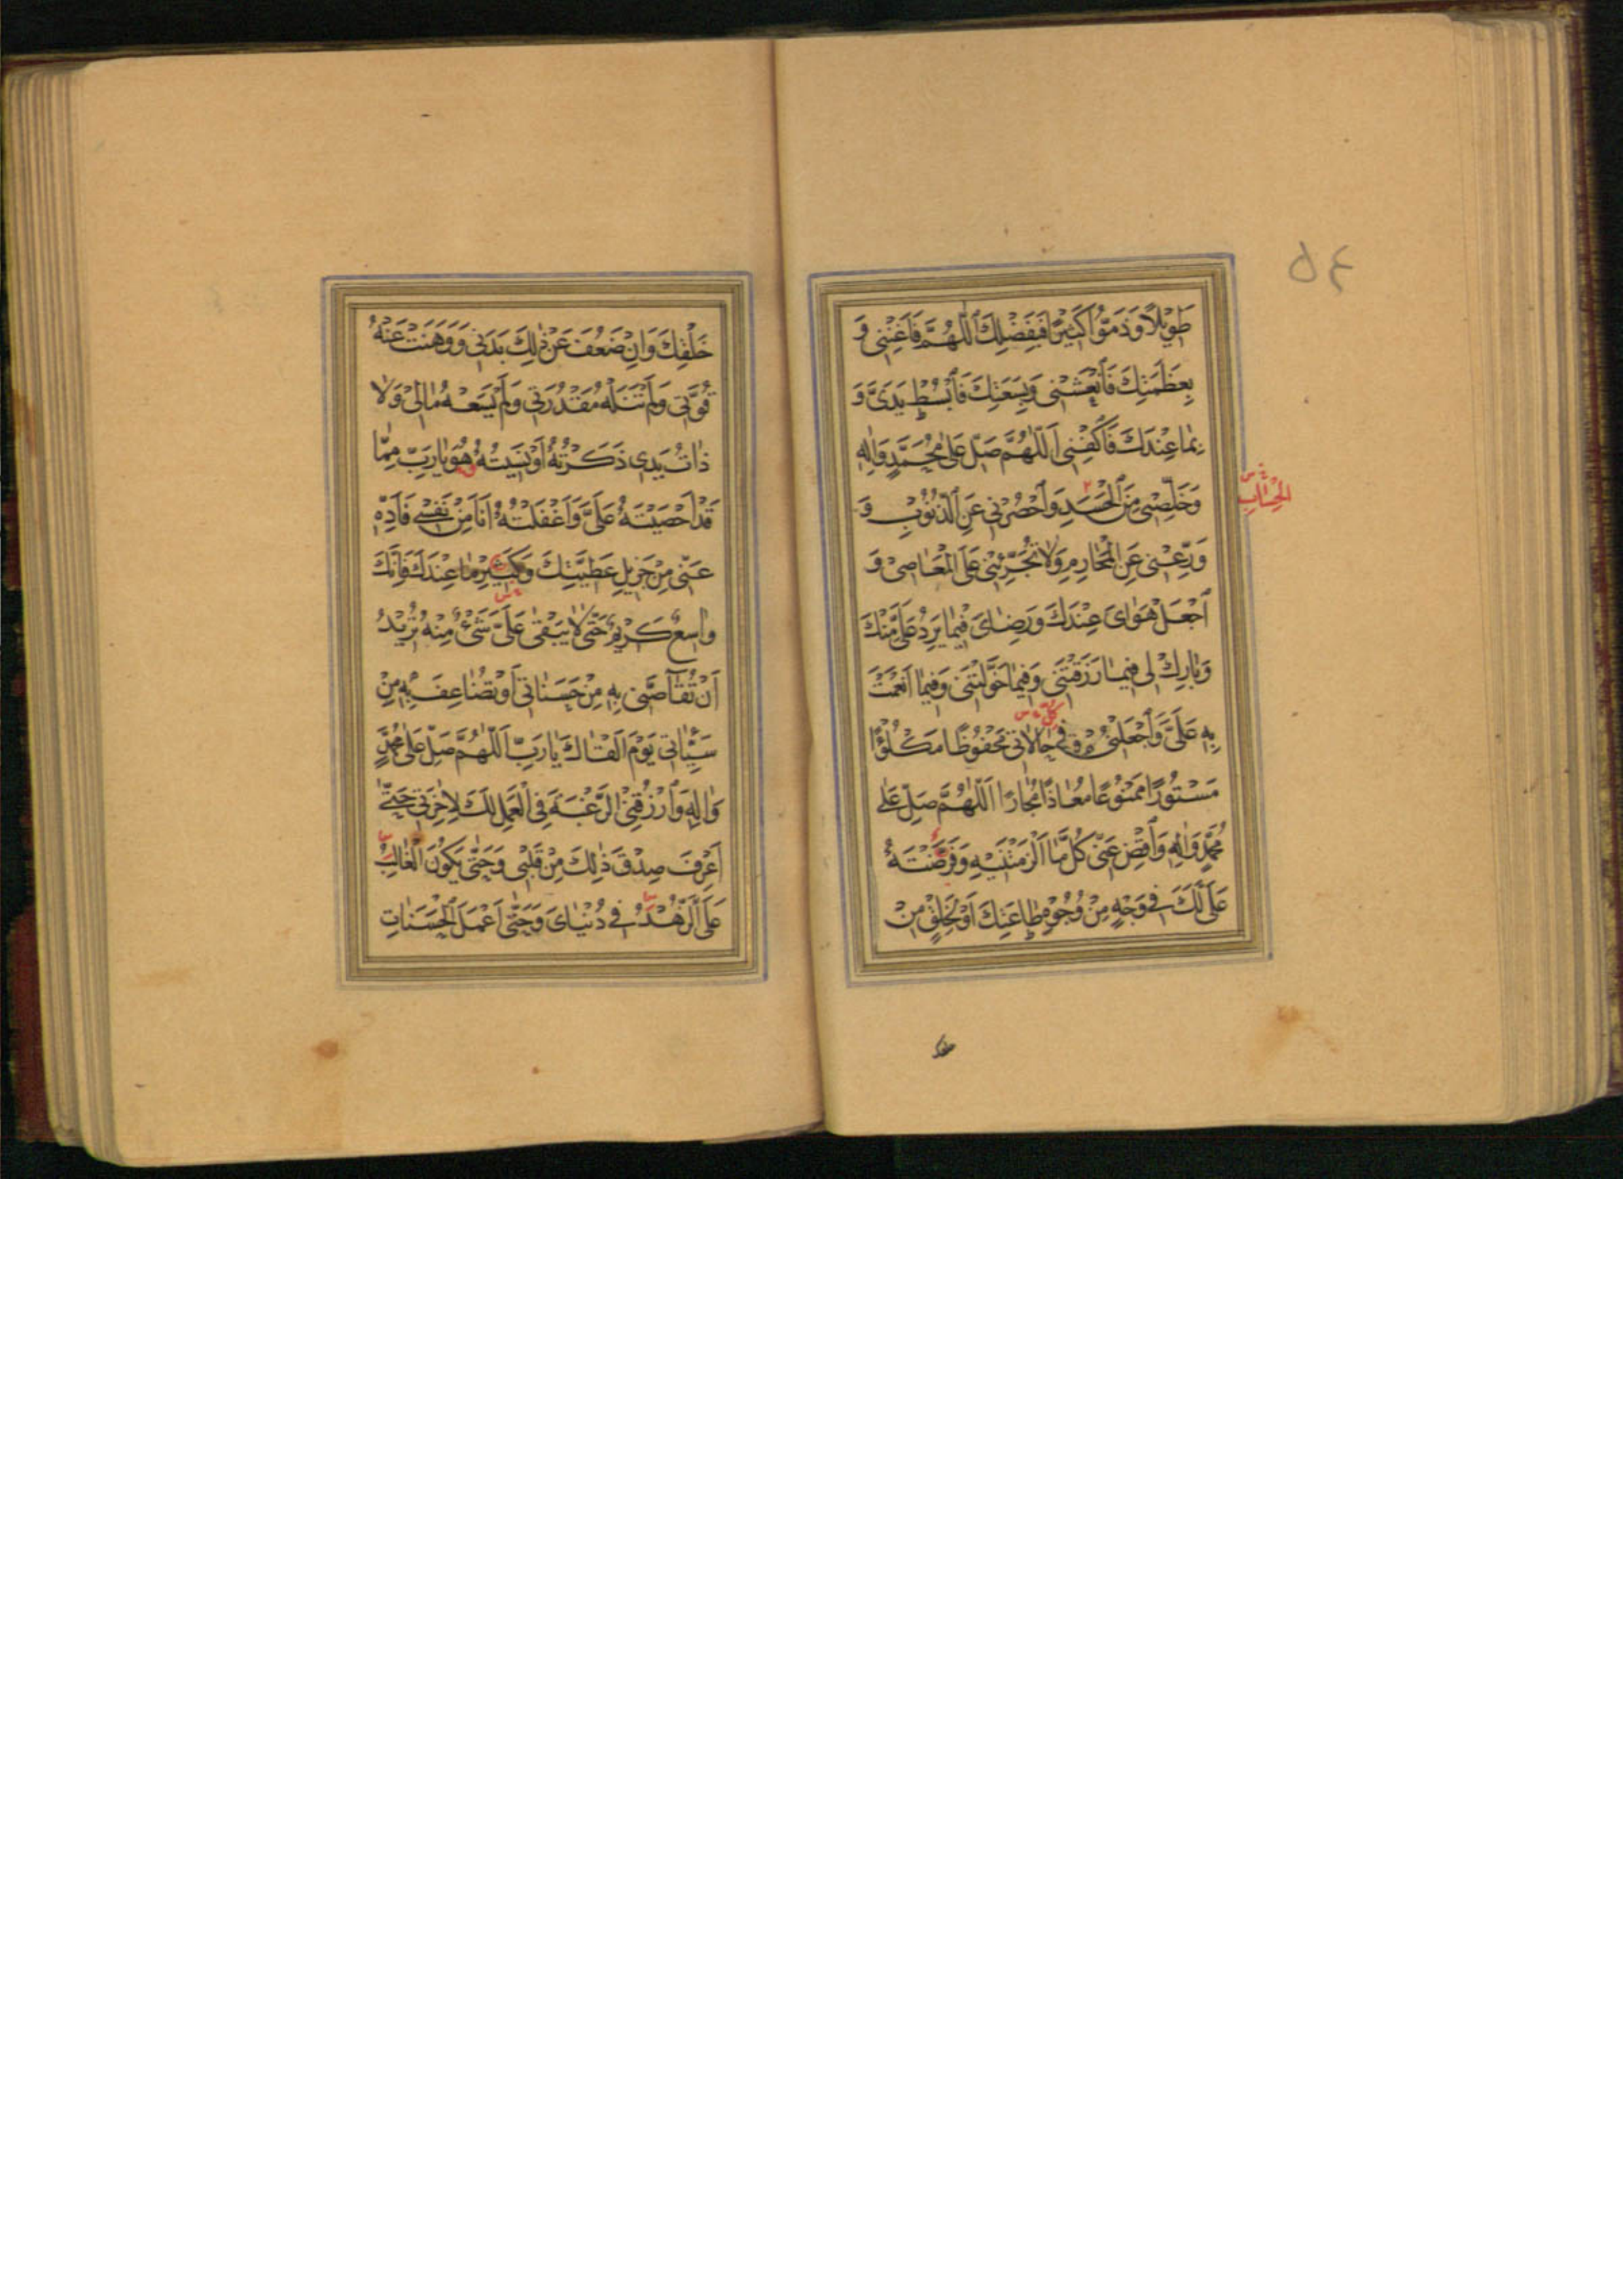 ۵٤
طَوِيْلًا وَذَمُّوا كَثِيْرًا فَبِفَضْلِكَ اللّٰهُمَّ فَاَغْنِنِى وَ
بِعَظَمَتِكَ فَانْعَشْنِى وَبِسَعَتِكَ فَابْسُطْ يَدِىَ وَ
بِمَا عِنْدَكَ فَاكْفِنِى اَللّٰهُمَّ صَلِّ عَلٰى مُحَمَّدٍ وَاٰلِهِ
وَخَلِّصْنِى مِنَ الْحَسَدِ وَاحْصُرْنِى عَنِ الذُّنُوْبِ وَ
الْحِسَابِ
وَرِّعْنِى عَنِ الْمَحَارِمِ وَلَا تُجَرِّئْنِى عَلَى الْمَعَاصِىْ وَ
اجْعَلْ هَوَاىَ عِنْدَكَ وَرِضَاىَ فِيْمَا يَرِدُ عَلَىَّ مِنْكَ
وَبَارِكْ لِى فِيْمَا رَزَقْتَنِى وَفِيْمَا خَوَّلْتَنِى وَفِيْمَا اَنْعَمْتَ
كُلِّ
بِهِ عَلَىَّ وَاجْعَلْنِى فِى حَالَاتِى مَحْفُوْظًا مَكْلُوْءًا
مَسْتُوْرًا مَمْنُوْعًا مُعَاذًا مُجَارًا اَللّٰهُمَّ صَلِّ عَلٰى
مُحَمَّدٍ وَاٰلِهِ وَاقْضِ عَنِّى كُلَّ مَا اَلْزَمْتَنِيْهِ وَفَرَضْتَهُ
عَلَىَّ لَكَ فِى وَجْهٍ مِنْ وُجُوْهِ طَاعَتِكَ اَوْ لِخَلْقٍ مِنْ
خَلْقِكَ وَاِنْ ضَعُفَ عَنْ ذٰلِكَ بَدَنِى وَوَهَنَتْ عَنْهُ
قُوَّتِى وَلَمْ تَنَلْهُ مَقْدُرَتِى وَلَمْ يَسَعْهُ مَالِى وَلَا
ذَاتُ يَدِى ذَكَرْتُهُ اَوْ نَسِيْتُهُ هُوَ يَارَبِّ مِمَّا
قَدْ اَحْصَيْتَهُ عَلَىَّ وَاَغْفَلْتُهُ اَنَا مِنْ نَفْسِى فَاَدِّهِ
عَنِّى مِنْ جَزِيْلِ عَطِيَّتِكَ وَكَثِيْرِ مَا عِنْدَكَ فَاِنَّكَ
وَاسِعٌ كَرِيْمٌ حَتّٰى لَا يَبْقٰى عَلَىَّ شَىْءٌ مِنْهُ تُرِيْدُ
اَنْ تُقَاصَّنِى بِهِ مِنْ حَسَنَاتِى اَوْ تُضَاعِفَ بِهِ مِنْ
سَيِّئَاتِى يَوْمَ اَلْقَاكَ يَا رَبِّ اَللّٰهُمَّ صَلِّ عَلٰى مُحَمَّدٍ
وَاٰلِهِ وَارْزُقْنِى الرَّغْبَةَ فِى الْعَمَلِ لَكَ لِاٰخِرَتِى حَتّٰى
اَعْرِفَ صِدْقَ ذٰلِكَ مِنْ قَلْبِى وَحَتّٰى يَكُوْنَ الْغَالِبُ
عَلَىَّ الزُّهْدَ فِى دُنْيَاىَ وَحَتّٰى اَعْمَلَ الْحَسَنَاتِ